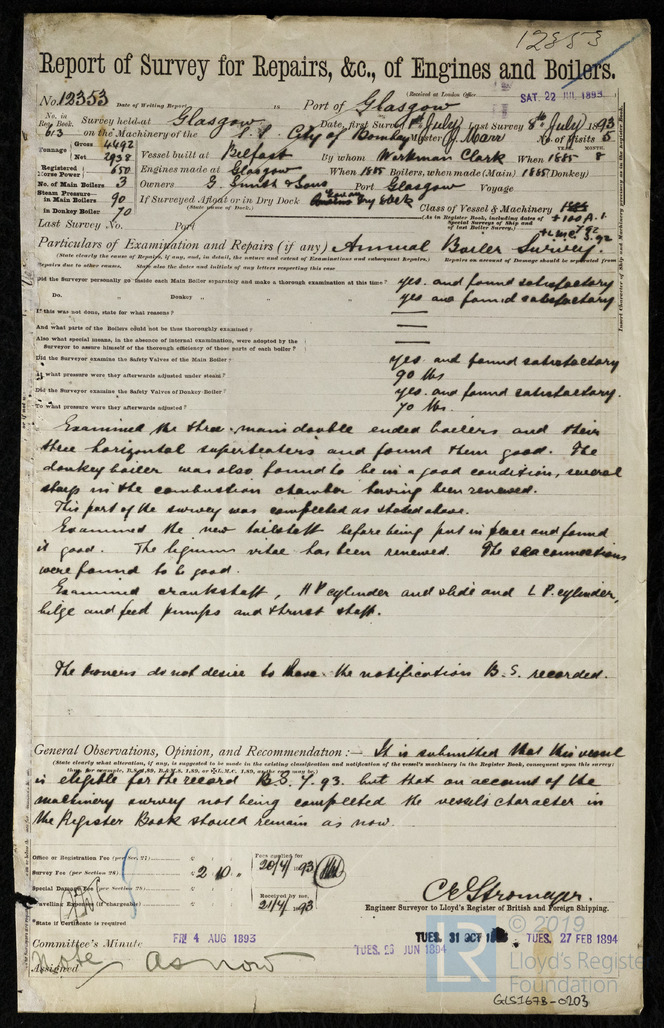 12353
Report of Survey for Repairs, &c., of Engines and Boilers.
(Received at London Office
SAT. 22 JUL 1893
No. 12353 Date of Writing Report is Port of Glasgow
No. in Reg. Book. Survey held at Glasgow Date, first Survey 1st July Last Survey 8th July 1893
613 on the Machinery of the S.S. City of Bombay Master J. Marr No. of Visits 5
Tonnage Gross 4492
Net 2938 Vessel built at Belfast By whom Workman Clark When 1885 8
YEAR. MONTH
Registered Horse Power 650 Engines made at Glasgow When 1885 Boilers, when made (Main) 1885 (Donkey)
No. of Main Boilers 3 Owners G. Smith & Sons Port Glasgow Voyage
Steam Pressure— in Main Boilers 90 If Surveyed Afloat or in Dry Dock Govan Dry Dock
(State name of Dock.)
in Donkey Boiler 70
Class of Vessel & Machinery
(As in Register Book, including dates of Special Surveys of Ship and of last Boiler Survey.)
+100A.1.
+LMC
Last Survey No. Port
Particulars of Examination and Repairs (if any) Annual Boiler Survey.
(State clearly the cause of Repairs, if any, and, in detail, the nature and extent of Examinations and subsequent Repairs.) Repairs on account of Damage should be separated from
Repairs due to other causes. State also the dates and initials of any letters respecting this case
Did the Surveyor personally go inside each Main Boiler separately and make a thorough examination at this time? yes. and found satisfactory
Do. Donkey „ „ yes and found satisfactory
If this was not done, state for what reasons? —
And what parts of the Boilers could not be thus thoroughly examined? —
Also what special means, in the absence of internal examination, were adopted by the
Surveyor to assure himself of the thorough efficiency of those parts of each boiler? —
Did the Surveyor examine the Safety Valves of the Main Boiler? yes. and found satisfactory
To what pressure were they afterwards adjusted under steam? 90 lbs
Did the Surveyor examine the Safety Valves of Donkey Boiler? yes. and found satisfactory.
To what pressure were they afterwards adjusted? 70 lbs.
Examined the three main double ended boilers and their
three horizontal superheaters and found them good. The
donkey boiler was also found to be in a good condition, several
stays in the combustion chamber having been renewed.
This part of the survey was completed as stated above.
Examined the new tailshaft before being put in place and found
it good. The lignum vitae has been renewed. The sea connections
were found to be good.
Examined crankshaft, H P cylinder and slide and L P. cylinder,
bilge and feed pumps and thrust shaft.
The owners do not desire to have the notification B.S. recorded.
General Observations, Opinion, and Recommendation :— It is submitted that this vessel
(State clearly what alteration, if any, is suggested to be made in the existing classification and notification of the vessel's machinery in the Register Book, consequent upon this survey;
is eligible for the record B.S. 7. 93. but that on account of the
machinery survey not being completed the vessel's character in
the Register Book should remain as now
Office or Registration Fee (per Sec. 27)
Survey Fee (per Section 28) 2. 10. „
Special Damage Fee (per Section 28)
Travelling Expenses (if chargeable)
State if Certificate is required
Fees applied for 20/7/93
Received by me, 21/7/93
C E Stromeyer.
Engineer Surveyor to Lloyd's Register of British and Foreign Shipping.
Committee's Minute
FRI 4 AUG 1893
TUES. 31 OCT 1893
TUES. 27 FEB 1894
TUES. 26 JUN 1894
Assigned
Note as now
© 2019
Lloyd's Register
Foundation
GLS1678-0203